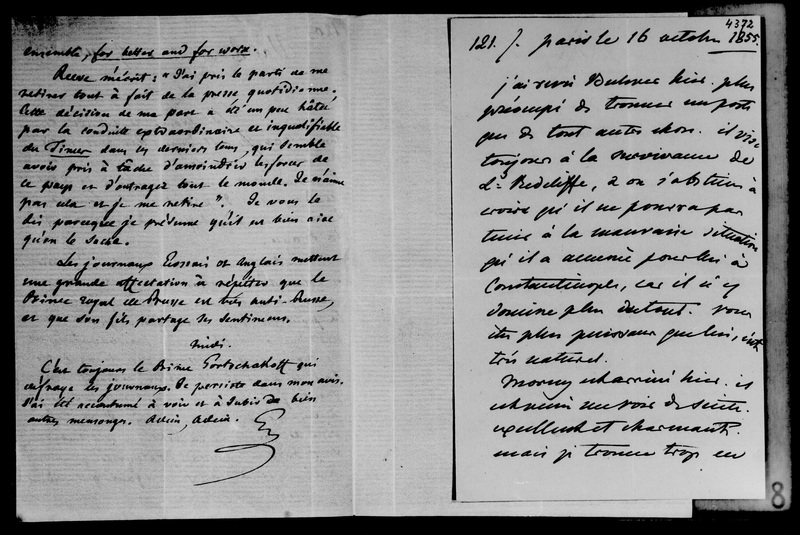 ensemble, for better and for worse.
Reeve m'écrit : "J'ai pris le parti de me
retirer tout à fait de la presse quotidienne.
Cette décision de ma part a été un peu hâtée
par la conduite extraordinaire et inqualifiable
du Times dans les derniers tems, qui semble
avoir pris à tâche d'amoindrir les forces de
ce pays et d'outrager tout le monde. Je n'aime
pas cela et je me retire". Je vous le
dis parceque je présume qu'il est bien aise
qu'on le sache.
Les journaux Ecossais et Anglais mettent
une grande affectation à répéter que le
Prince royal de Prusse est très anti-Russe,
et que son fils partage ses sentimens.
midi.
C'est toujours le Prince Gortschakoff qui
défraye les journaux. Je persiste dans mon avis.
J'ai été accoutumé à voir et à subir de bien
autres mensonges. Adieu, Adieu.
G
4372
121. /. paris le 16 octobre 1855.
j'ai revu Bulwer hier. plus
préoccupé de trouver un poste
que de tout autre chose. il vise
toujours à la survivance de
Ld Redcliffe, & on s'obstine à
croire qu'il ne pourra pas
tenir à la mauvaise situation
qu'il a amenée pour lui à
Constantinople, car il n'y
domine plus du tout. vous
êtes plus puissans que lui, c'est
très naturel.
Morny est arrivé hier. et
est venu me voir de suite.
excellent et charmant.
mais je trouve trop en
8